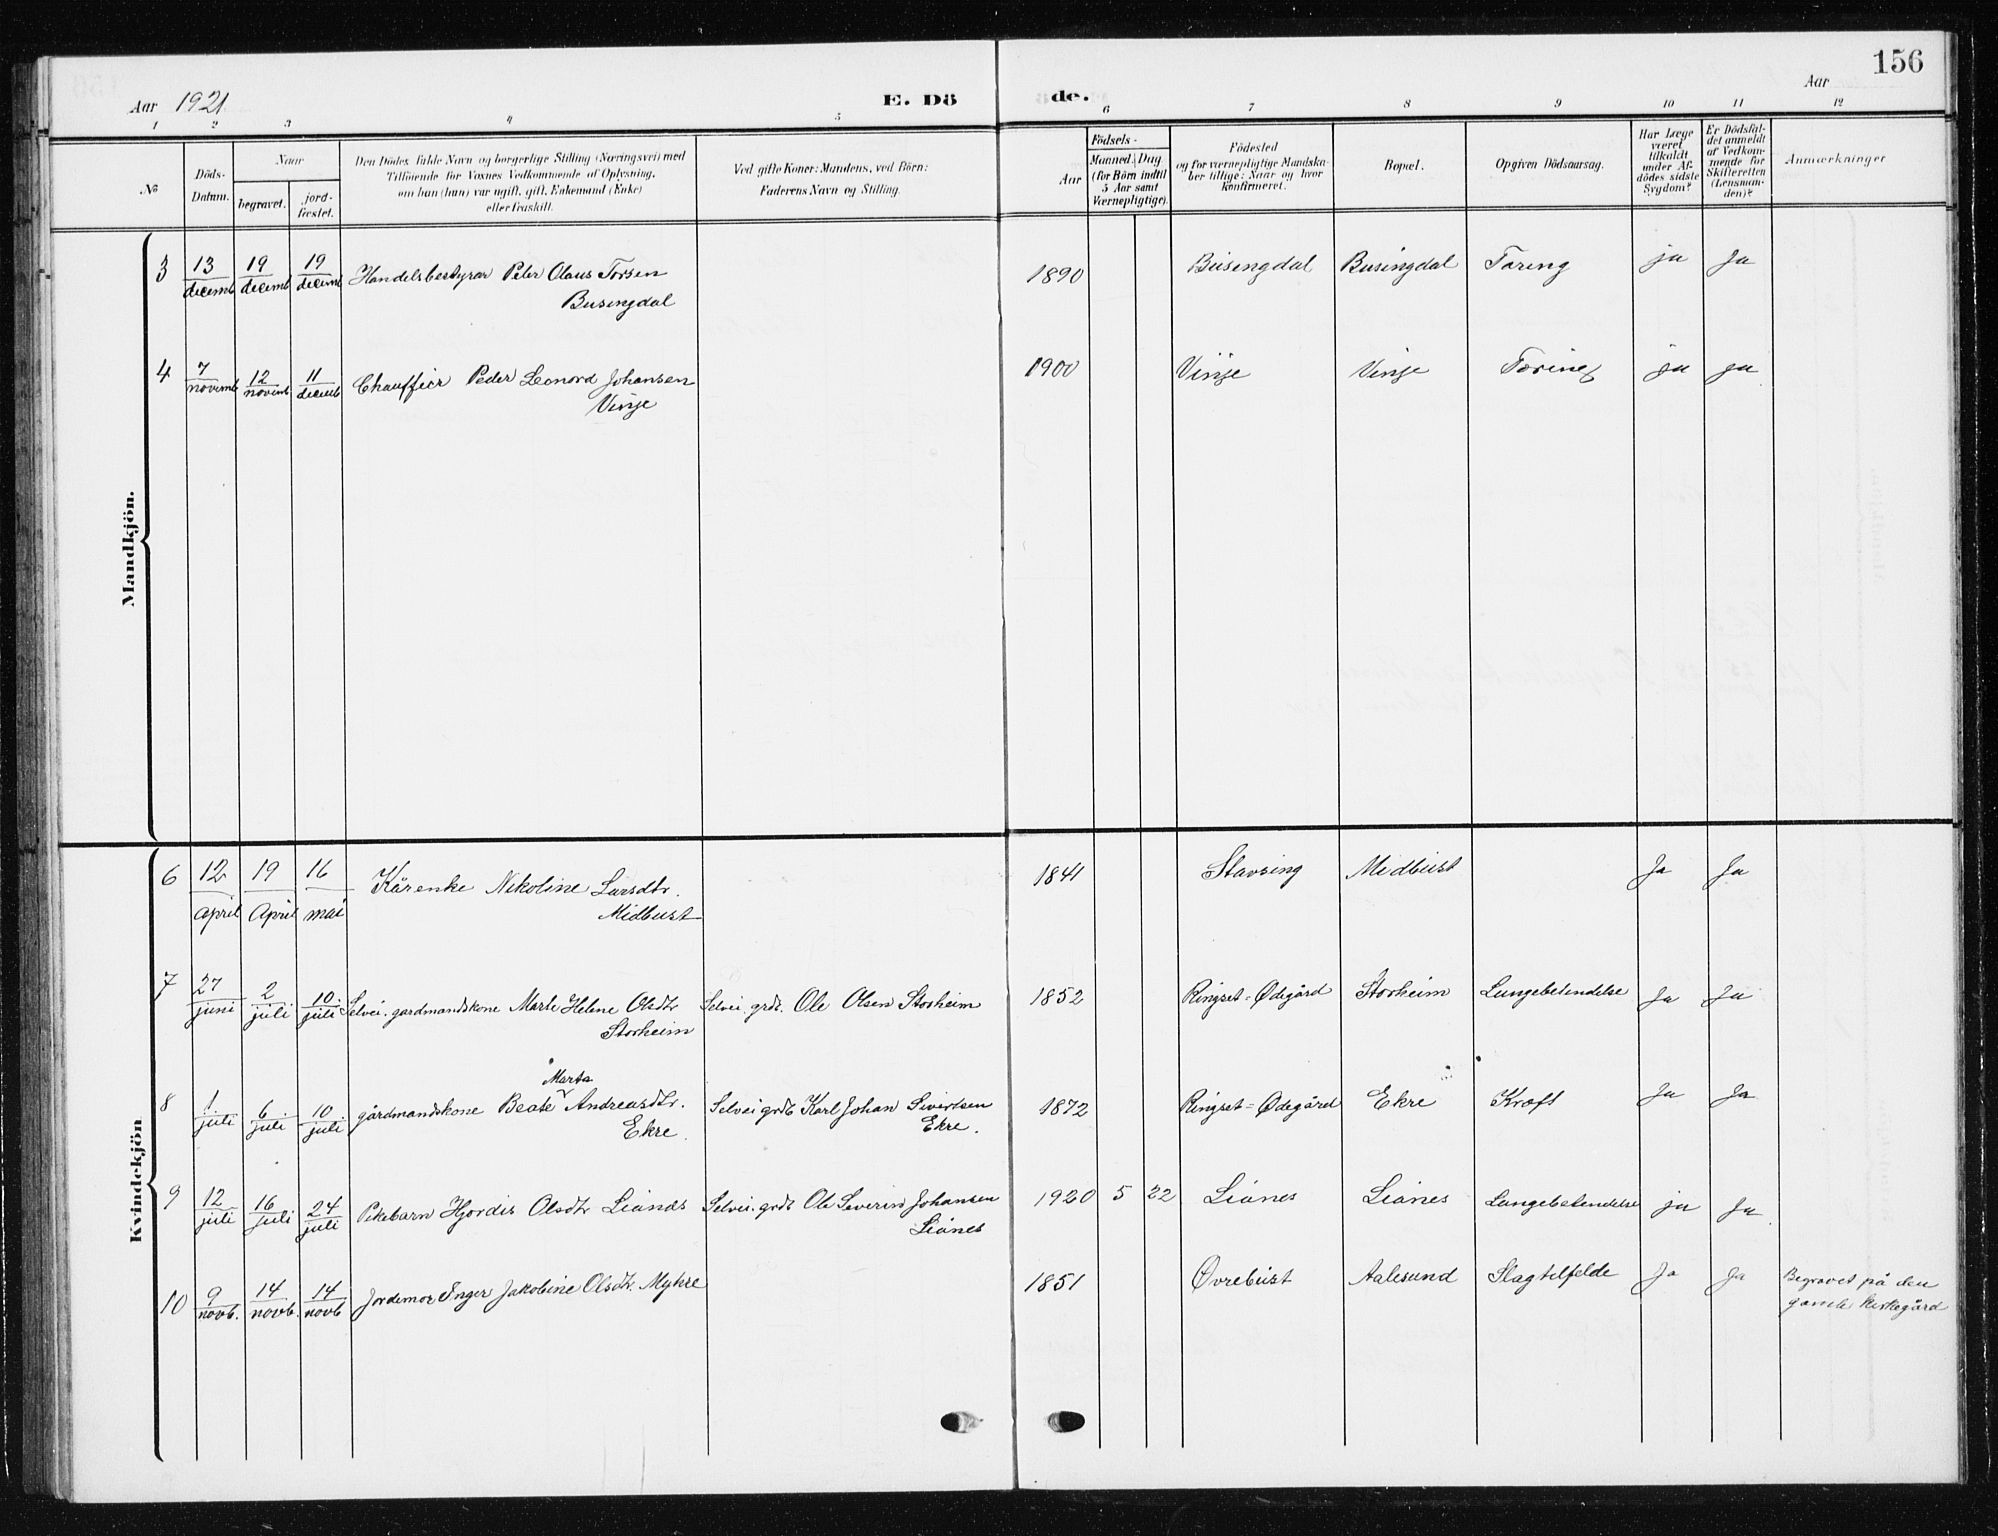 156
Aar 1921
E. Dö
de.
Aar
1 2 3 4 5 6 7 8 9 10 11 12
No
Döds-
Datum.
Naar
begravet.
jord-
fæstet.
Den Dödes fulde Navn og borgerlige Stilling (Næringsvei) med
Tilföiende for Voxnes Vedkommende af Oplysning,
om han (hun) var ugift, gift, Enkemand (Enke)
eller fraskilt.
Ved gifte Koner: Mandens, ved Börn:
Faderens Navn og Stilling.
Födsels-
Aar
Maaned. Dag
(for Börn indtil
5 Aar samt
Værnepligtige).
Födested
og for værnepligtige Mandska-
ber tillige: Naar og hvor
konfirmeret.
Bopæl.
Opgiven Dödsaarsag.
Har Læge
været
tilkaldt
under Af-
dödes sidste
Sygdom?
Er Dödsfal-
det anmeldt
af Vedkom-
mende for
Skifteretten
(Lensman-
den)?
Anmærkninger
Mandkjön.
3 13 decemb 19 decemb 19 decemb Handelsbestyrar Peter Olaus Torsen 1890 Busengdal Busingdal Tæring ja Ja
Busengdal
4 7 novemb 12 novemb 11 decemb Chauffiør Peder Leonord Johansen 1900 Vinje Vinje Tæring ja ja
Vinje
Kvindekjön
6 12 april 19 April 16 mai Kårenke Nikoline Larsdtr. 1841 Stavsing Midbust Ja Ja
Midbust
7 27 juni 2 juli 10 juli Selvei. gardmandskone Marte Helene Olsdtr Selvei. grdt. Ole Olsen Storheim 1852 Ringset-Ødegård Storheim Lungebetendelse Ja Ja
Storheim
Marta
8 1 juli 6 juli 10 juli gårdmandskone Beate Andreasdtr. Selvei grdb Karl Johan Sivertsen 1872 Ringset-Ødegård Ekre Kræft Ja Ja
Ekre. Ekre.
9 12 juli 16 juli 24 juli Pikebarn Hjordis Olsdtr Liånes Selvei. grdb Ole Severin Johansen 1920 5 22 Liånes Liånes Lungebetendelse ja Ja
Liånes
10 9 novb. 14 novb. 14 novb Jordemor Inger Jakobine Olsdtr. Myhre 1851 Øvrebust Aalesund Slagtilfelde Ja Ja Begravet på den
gamle kirkegård